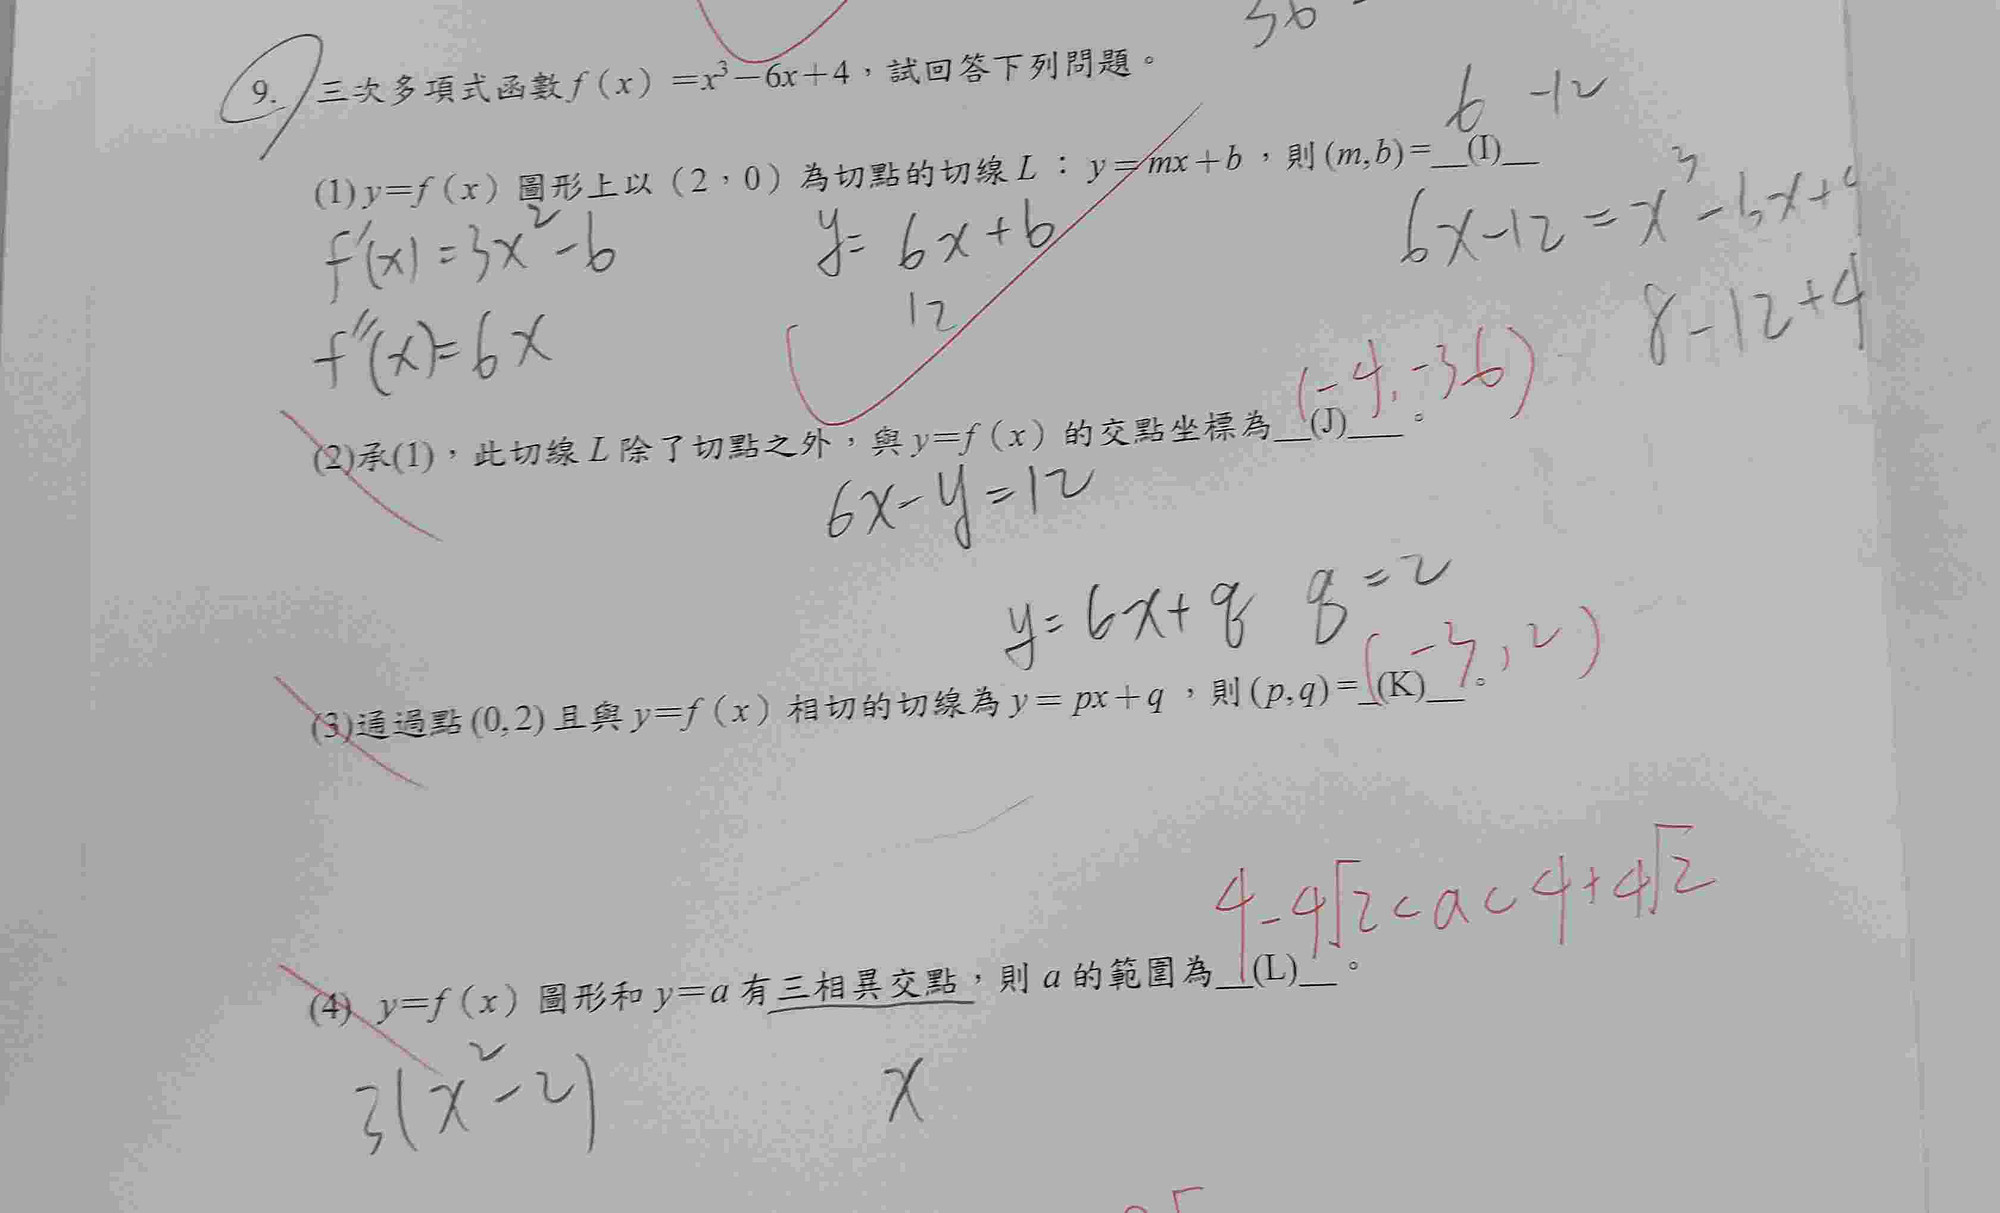 36 -
9. 三次多項式函數 f(x) =x³-6x+4,試回答下列問題。
6 -12
(1) y=f(x) 圖形上以(2,0)為切點的切線 L:y=mx+b,則(m,b)=__(I)__
f'(x)=3x²-6
y=6x+b
6x-12=x³-6x+4
12
8-12+4
f''(x)=6x
(-4,-36)
(2)承(1),此切線 L 除了切點之外,與 y=f(x) 的交點坐標為__(J)___。
6x-y=12
y=6x+q q=2
(-3,2)
(3)通過點(0,2)且與 y=f(x) 相切的切線為 y= px+q,則(p,q)=_(K)__。
4-4√2<a<4+4√2
(4) y=f(x) 圖形和 y=a 有三相異交點,則 a 的範圍為__(L)__。
3(x²-2)
x